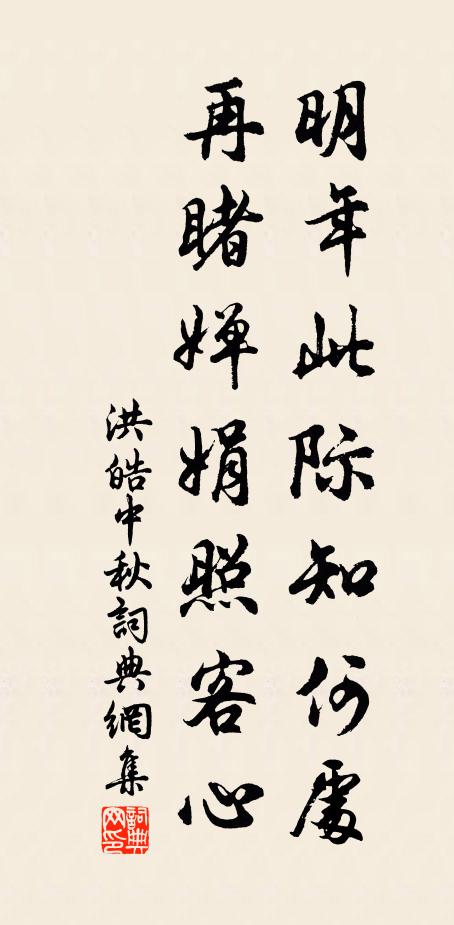 明年此际知何處
再睹婵娟照客心
洪皓中秋詞典網集
詞典网印